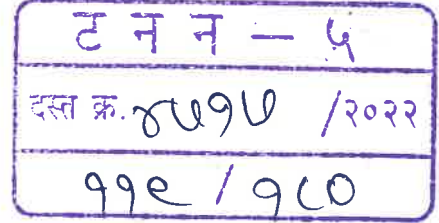 ट न न — ५
दस्त क्र. ४५१५ /२०२२
११९ / १८०